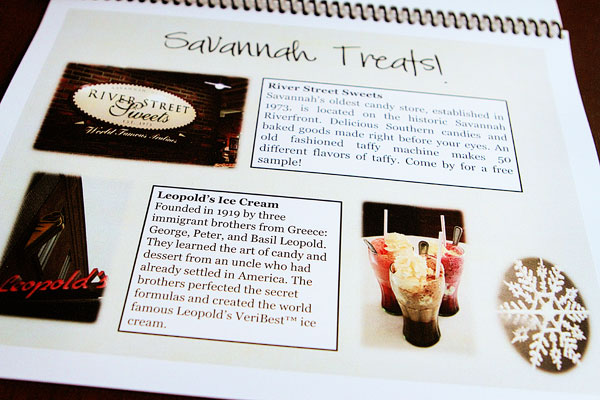 Savannah Treats!
RIVER STREET
Sweets
EST. 1973
World Famous Pralines
River Street Sweets
Savannah's oldest candy store, established in
1973, is located on the historic Savannah
Riverfront. Delicious Southern candies and
baked goods made right before your eyes. An
old fashioned taffy machine makes 50
different flavors of taffy. Come by for a free
sample!
Leopold's Ice Cream
Founded in 1919 by three
immigrant brothers from Greece:
George, Peter, and Basil Leopold.
They learned the art of candy and
dessert from an uncle who had
already settled in America. The
brothers perfected the secret
formulas and created the world
famous Leopold's VeriBest™ ice
cream.
Leopold's